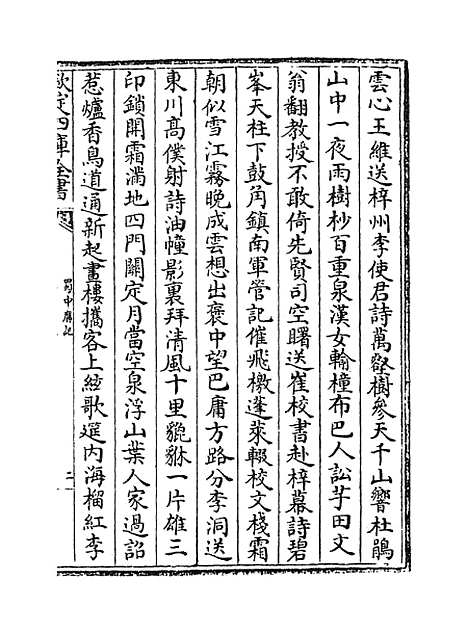 雲心王維送梓州李使君詩萬壑樹參天千山響杜鵑
山中一夜雨樹杪百重泉漢女輸橦布巴人訟芋田文
翁翻教授不敢倚先賢司空曙送崔校書赴梓幕詩碧
峯天柱下鼓角鎮南軍管記催飛檄蓬萊輟校文棧霜
朝似雪江霧晚成雲想出褒中望巴庸方路分李洞送
東川高僕射詩油幢影裏拜清風十里貔貅一片雄三
印鎖開霜滿地四門關定月當空泉浮山葉人家過詔
惹爐香鳥道通新起畫樓攜客上絃歌筵内海榴紅李
欽定四庫全書
蜀中廣記